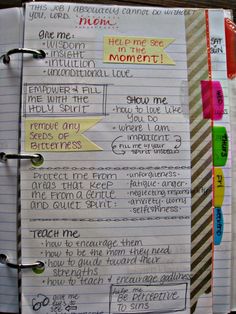 THIS JOB I absolutely cannot do without
YOU, LORD.
mom
Give me:
-WISDOM
-insight
-intuition
-unconditional love
HELP ME SEE
in the
MOMENT!
EMPOWER & FILL
ME WITH THE
HOLY SPIRIT
SHOW me
-how to love like
YOU DO
- where I am
impatient
FILL me w/ YOUR
SPIRIT instead
remove any
SEEDS OF
BITTERNESS
PROTECT ME FROM
AREAS THAT KEEP
ME FROM A GENTLE
AND QUIET SPIRIT:
-unforgiveness-
-fatigue-anger-
-neglecting responsibilities
-anxiety-worry
-selfishness-
TEACH me
-how to encourage them
-how to be the mom they need
-how to guide toward their
strengths
-how to teach & encourage godliness
GO
give me
eyes
to SEE
help me
BE PERCEPTIVE
TO SINS
SAT
SUN
FRI